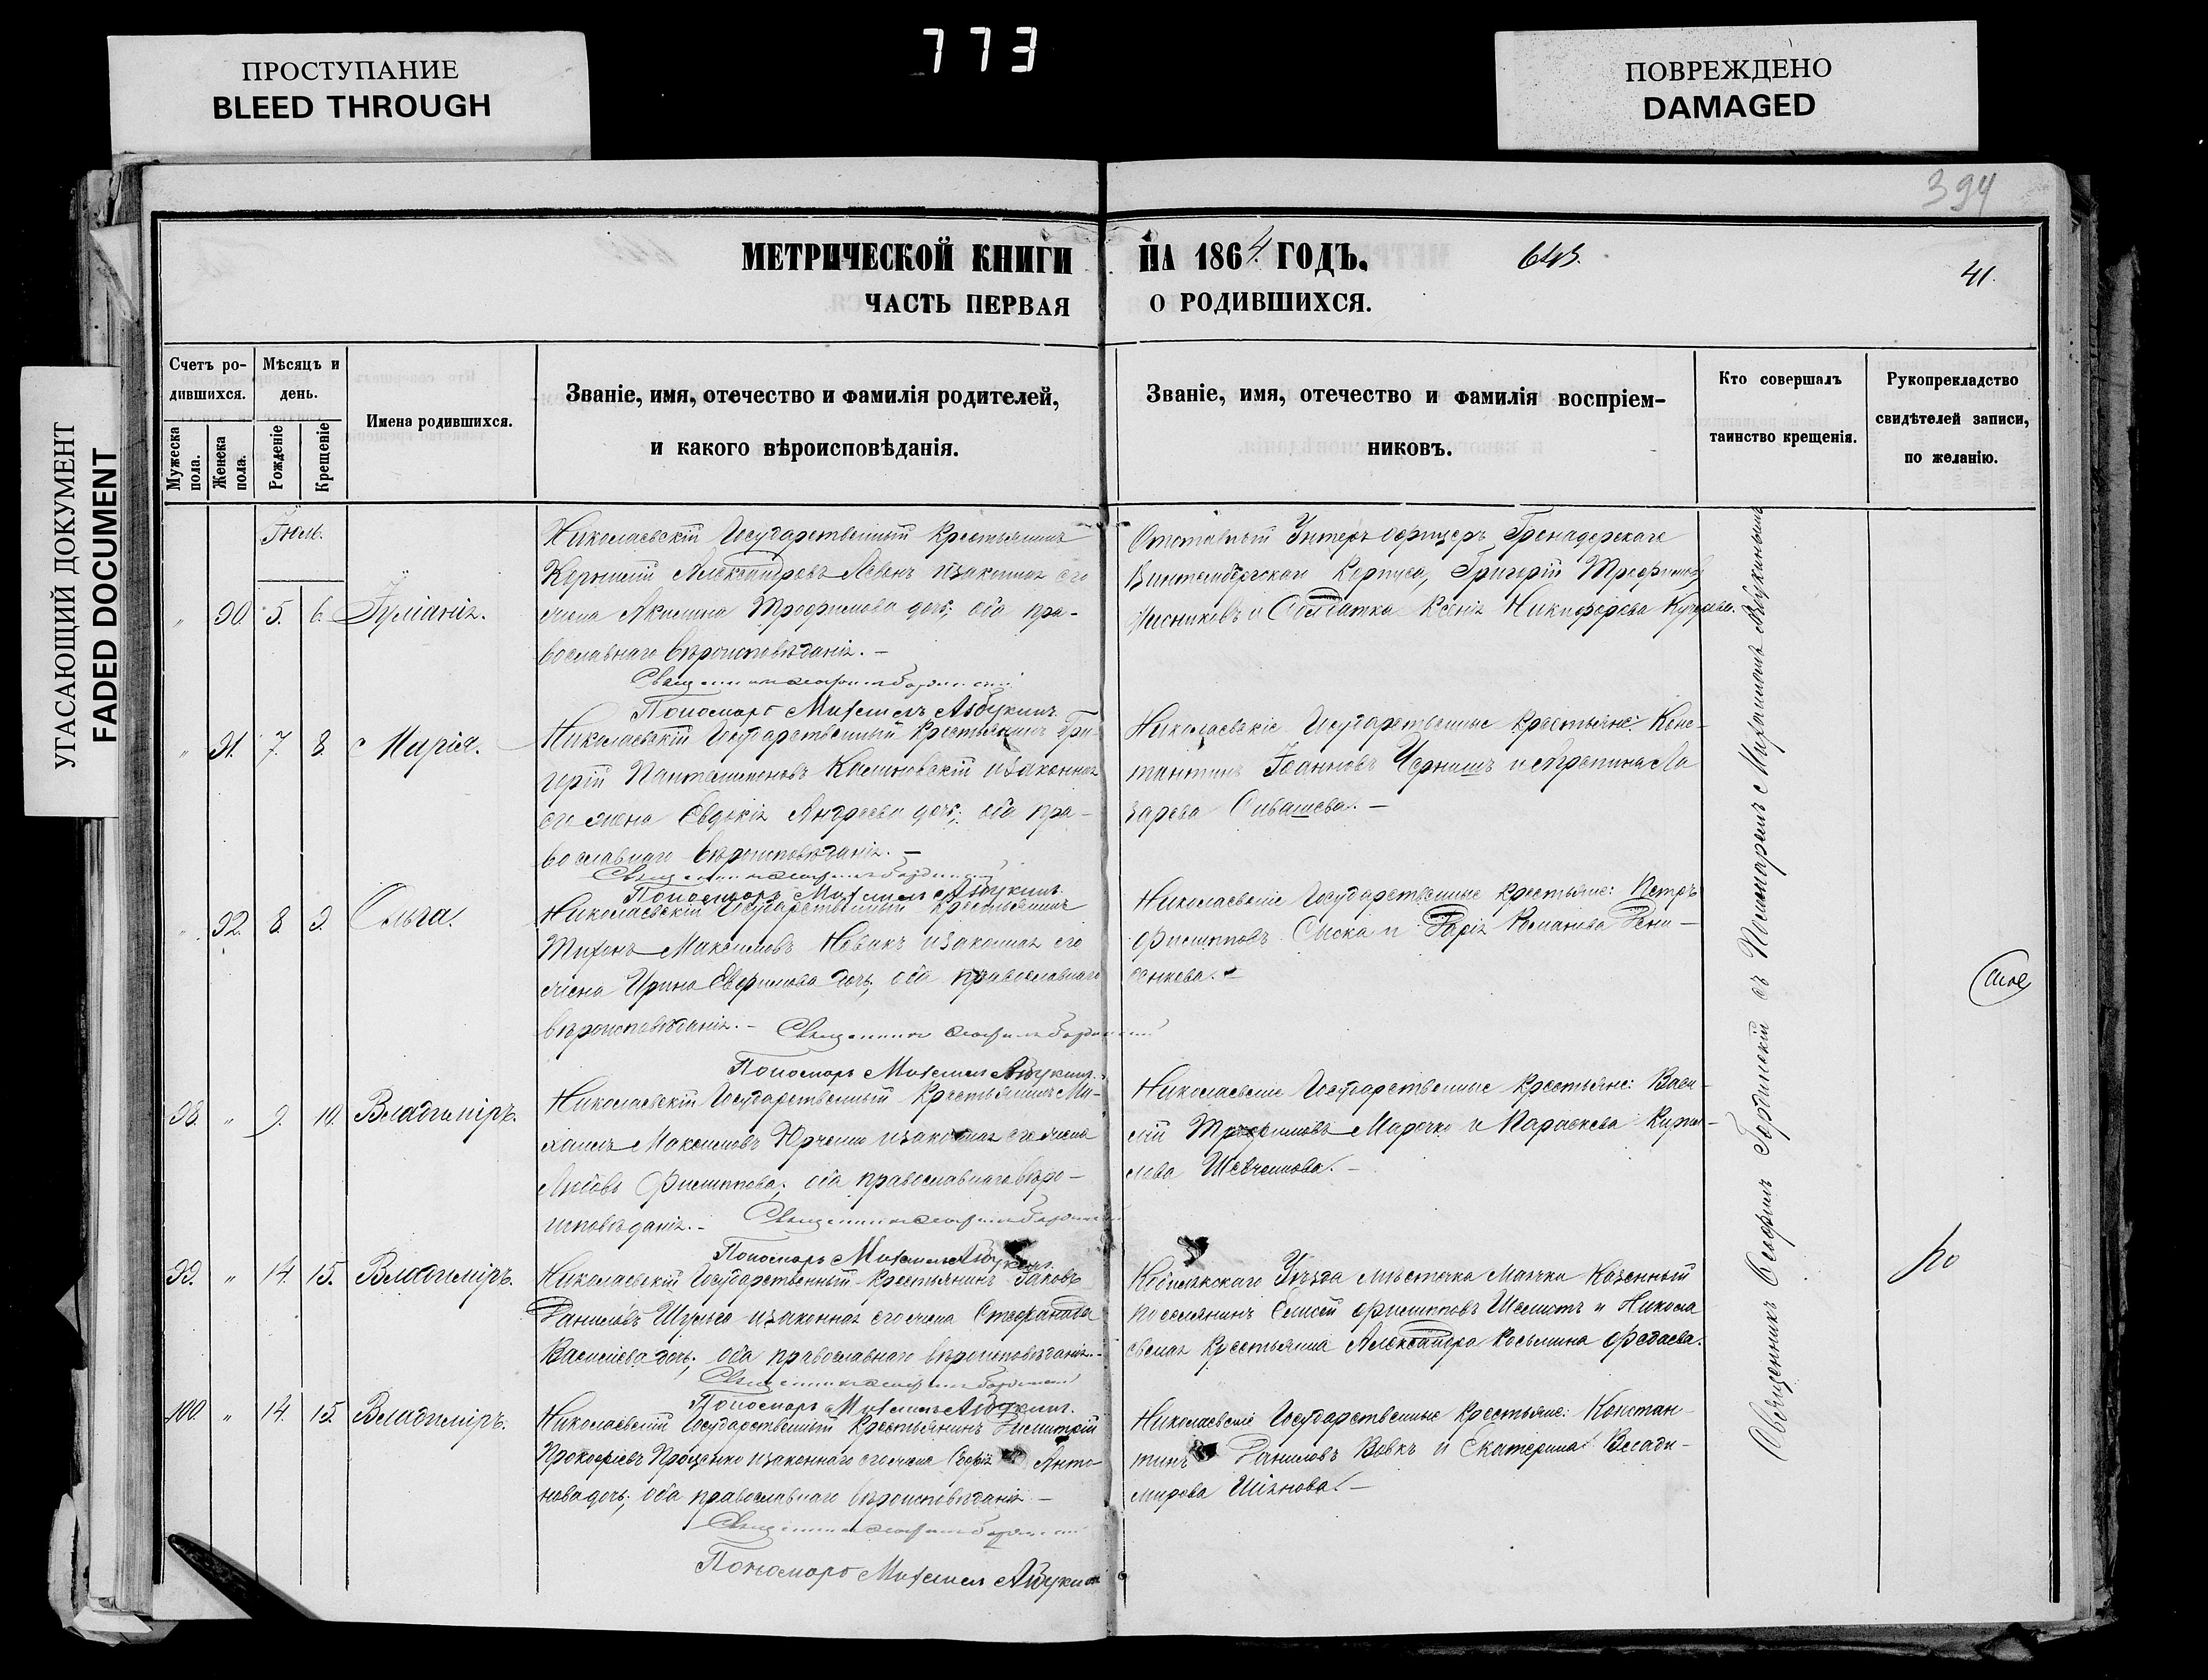 773
ПРОСТУПАНИЕ
BLEED THROUGH
ПОВРЕЖДЕНО
DAMAGED
УГАСАЮЩИЙ ДОКУМЕНТ
FADED DOCUMENT
394
МЕТРИЧЕСКОЙ КНИГИ НА 1864 ГОДЪ.
643.
41.
ЧАСТЬ ПЕРВАЯ О РОДИВШИХСЯ.
Счетъ родившихся.
Мужеска пола.
Женска пола.
Мѣсяцъ и день.
Рожденіе
Крещеніе
Имена родившихся.
Званіе, имя, отечество и фамилія родителей,
и какого вѣроисповѣданія.
Званіе, имя, отечество и фамилія воспріем-
никовъ.
Кто совершалъ
таинство крещенія.
Рукоприкладство
свидѣтелей записи,
по желанію.
Іюль.
" 90 5. 6. Іуліанія.
Николаевскій Государственный крестьянинъ
Александровъ и законная его
жена Акилина Трофимова дочь; оба пра-
вославнаго вѣроисповѣданія. —
Пономарь Михаилъ Азбукинъ
Отставной Унтеръ офицеръ Гренадерскаго
Корпуса, Григорій Трофимовъ
и Солдатка Ксенія Никифорова
" 91. 7. 8. Марія.
Николаевскій Государственный крестьянинъ Гри-
горій Пантелимоновъ и законная
его жена Евдокія Андреева дочь; оба пра-
вославнаго вѣроисповѣданія. —
Пономарь Михаилъ Азбукинъ
Николаевскіе Государственные крестьяне: Конс-
тантинъ Іоанновъ Чернышъ и Агрепина Ла
зарева Сивашева. —
" 92. 8. 9. Ольга.
Николаевскій Государственный крестьянинъ
Тихонъ Максимовъ Новакъ и законная его
жена Ирина Евфимова дочь; оба православнаго
вѣроисповѣданія. —
Пономарь Михаилъ Азбукинъ.
Николаевскіе Государственные крестьяне: Петръ
Филипповъ и Дарія Романова
98. " 9. 10. Владиміръ.
Николаевскій Государственный крестьянинъ Ми-
хаилъ Максимовъ Юрченко и законная его жена
Любовь Филиппова; оба православнаго вѣро-
исповѣданія. —
Пономарь Михаилъ Азбукинъ
Николаевскіе Государственные крестьяне: Васи-
лій Трофимовъ Марочко и Параскева Кири-
лова Шевченкова. —
99. " 14. 15. Владиміръ.
Николаевскій Государственный крестьянинъ Іаковъ
Даниловъ Шульга и законная его жена Стефанида
Василіева дочь; оба православнаго вѣроисповѣданія. —
Пономарь Михаилъ Азбукинъ.
Кобелякскаго Уѣзда мѣстечка Маячки Казенный
поселянинъ Филипповъ и Никола
евская крестьянка Александра Косьмина
100. " 14. 15. Владиміръ.
Николаевскій Государственный крестьянинъ Димитрій
Прокофіевъ Проценко и законная его жена Софія Анто-
нова дочь; оба православнаго вѣроисповѣданія —
Пономарь Михаилъ Азбукинъ
Николаевскіе Государственные крестьяне: Констан-
тинъ Даниловъ Вовкъ и Екатерина Влади-
мирова —
Священникъ Ѳеофилъ съ Пономаремъ Михаиломъ Азбукинымъ
по